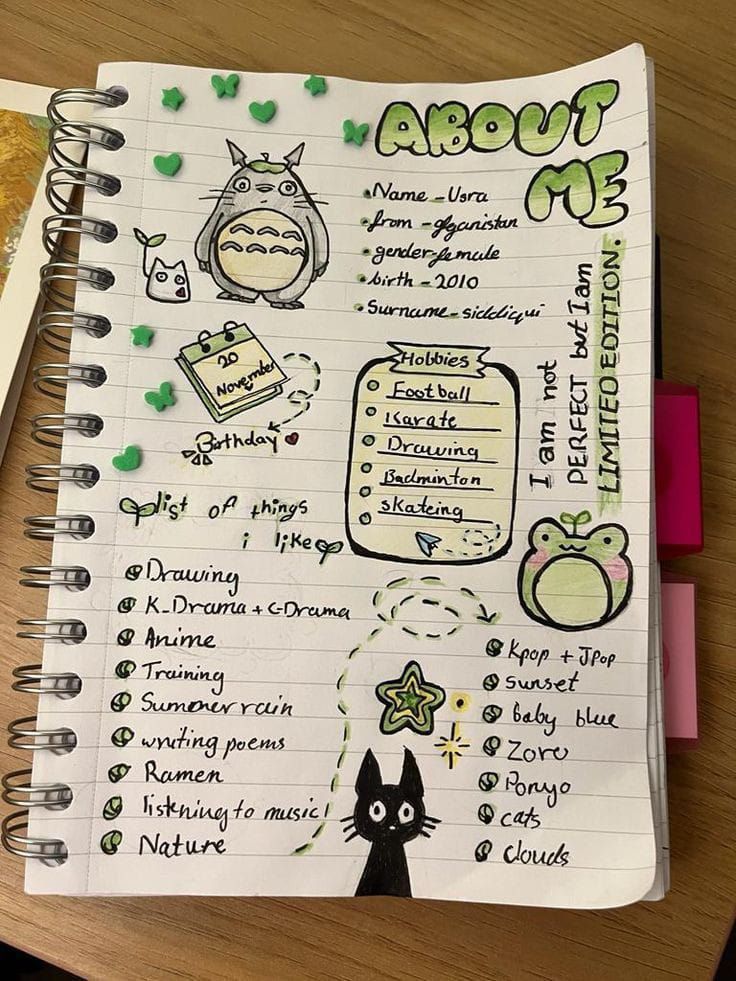 ABOUT
ME
Name - Usra
from - afganistan
gender - female
birth - 2010
Surname - siddiqui
20
November
Birthday
Hobbies
Football
Karate
Drawing
Badminton
skateing
I am not
PERFECT but I am
LIMITED EDITION.
list of things
i like
Drawing
K_Drama + C-Drama
Anime
Training
Summer rain
writing poems
Ramen
listening to music
Nature
Kpop + JPop
sunset
baby blue
Zoro
Ponyo
cats
clouds